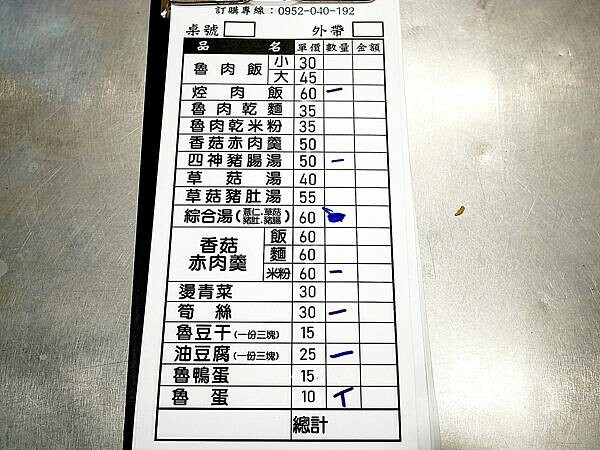 訂購專線：0952-040-192
桌號 外帶
品名 單價 數量 金額
魯肉飯 小 30
大 45
焢肉飯 60 一
魯肉乾麵 35
魯肉乾米粉 35
香菇赤肉羹 50
四神豬腸湯 50 一
草菇湯 40
草菇豬肚湯 55
綜合湯(薏仁.草菇 豬肚.豬腸) 60
香菇赤肉羹 飯 60
麵 60
米粉 60 一
燙青菜 30
筍絲 30 一
魯豆干(一份三塊) 15
油豆腐(一份三塊) 25 一
魯鴨蛋 15
魯蛋 10
總計